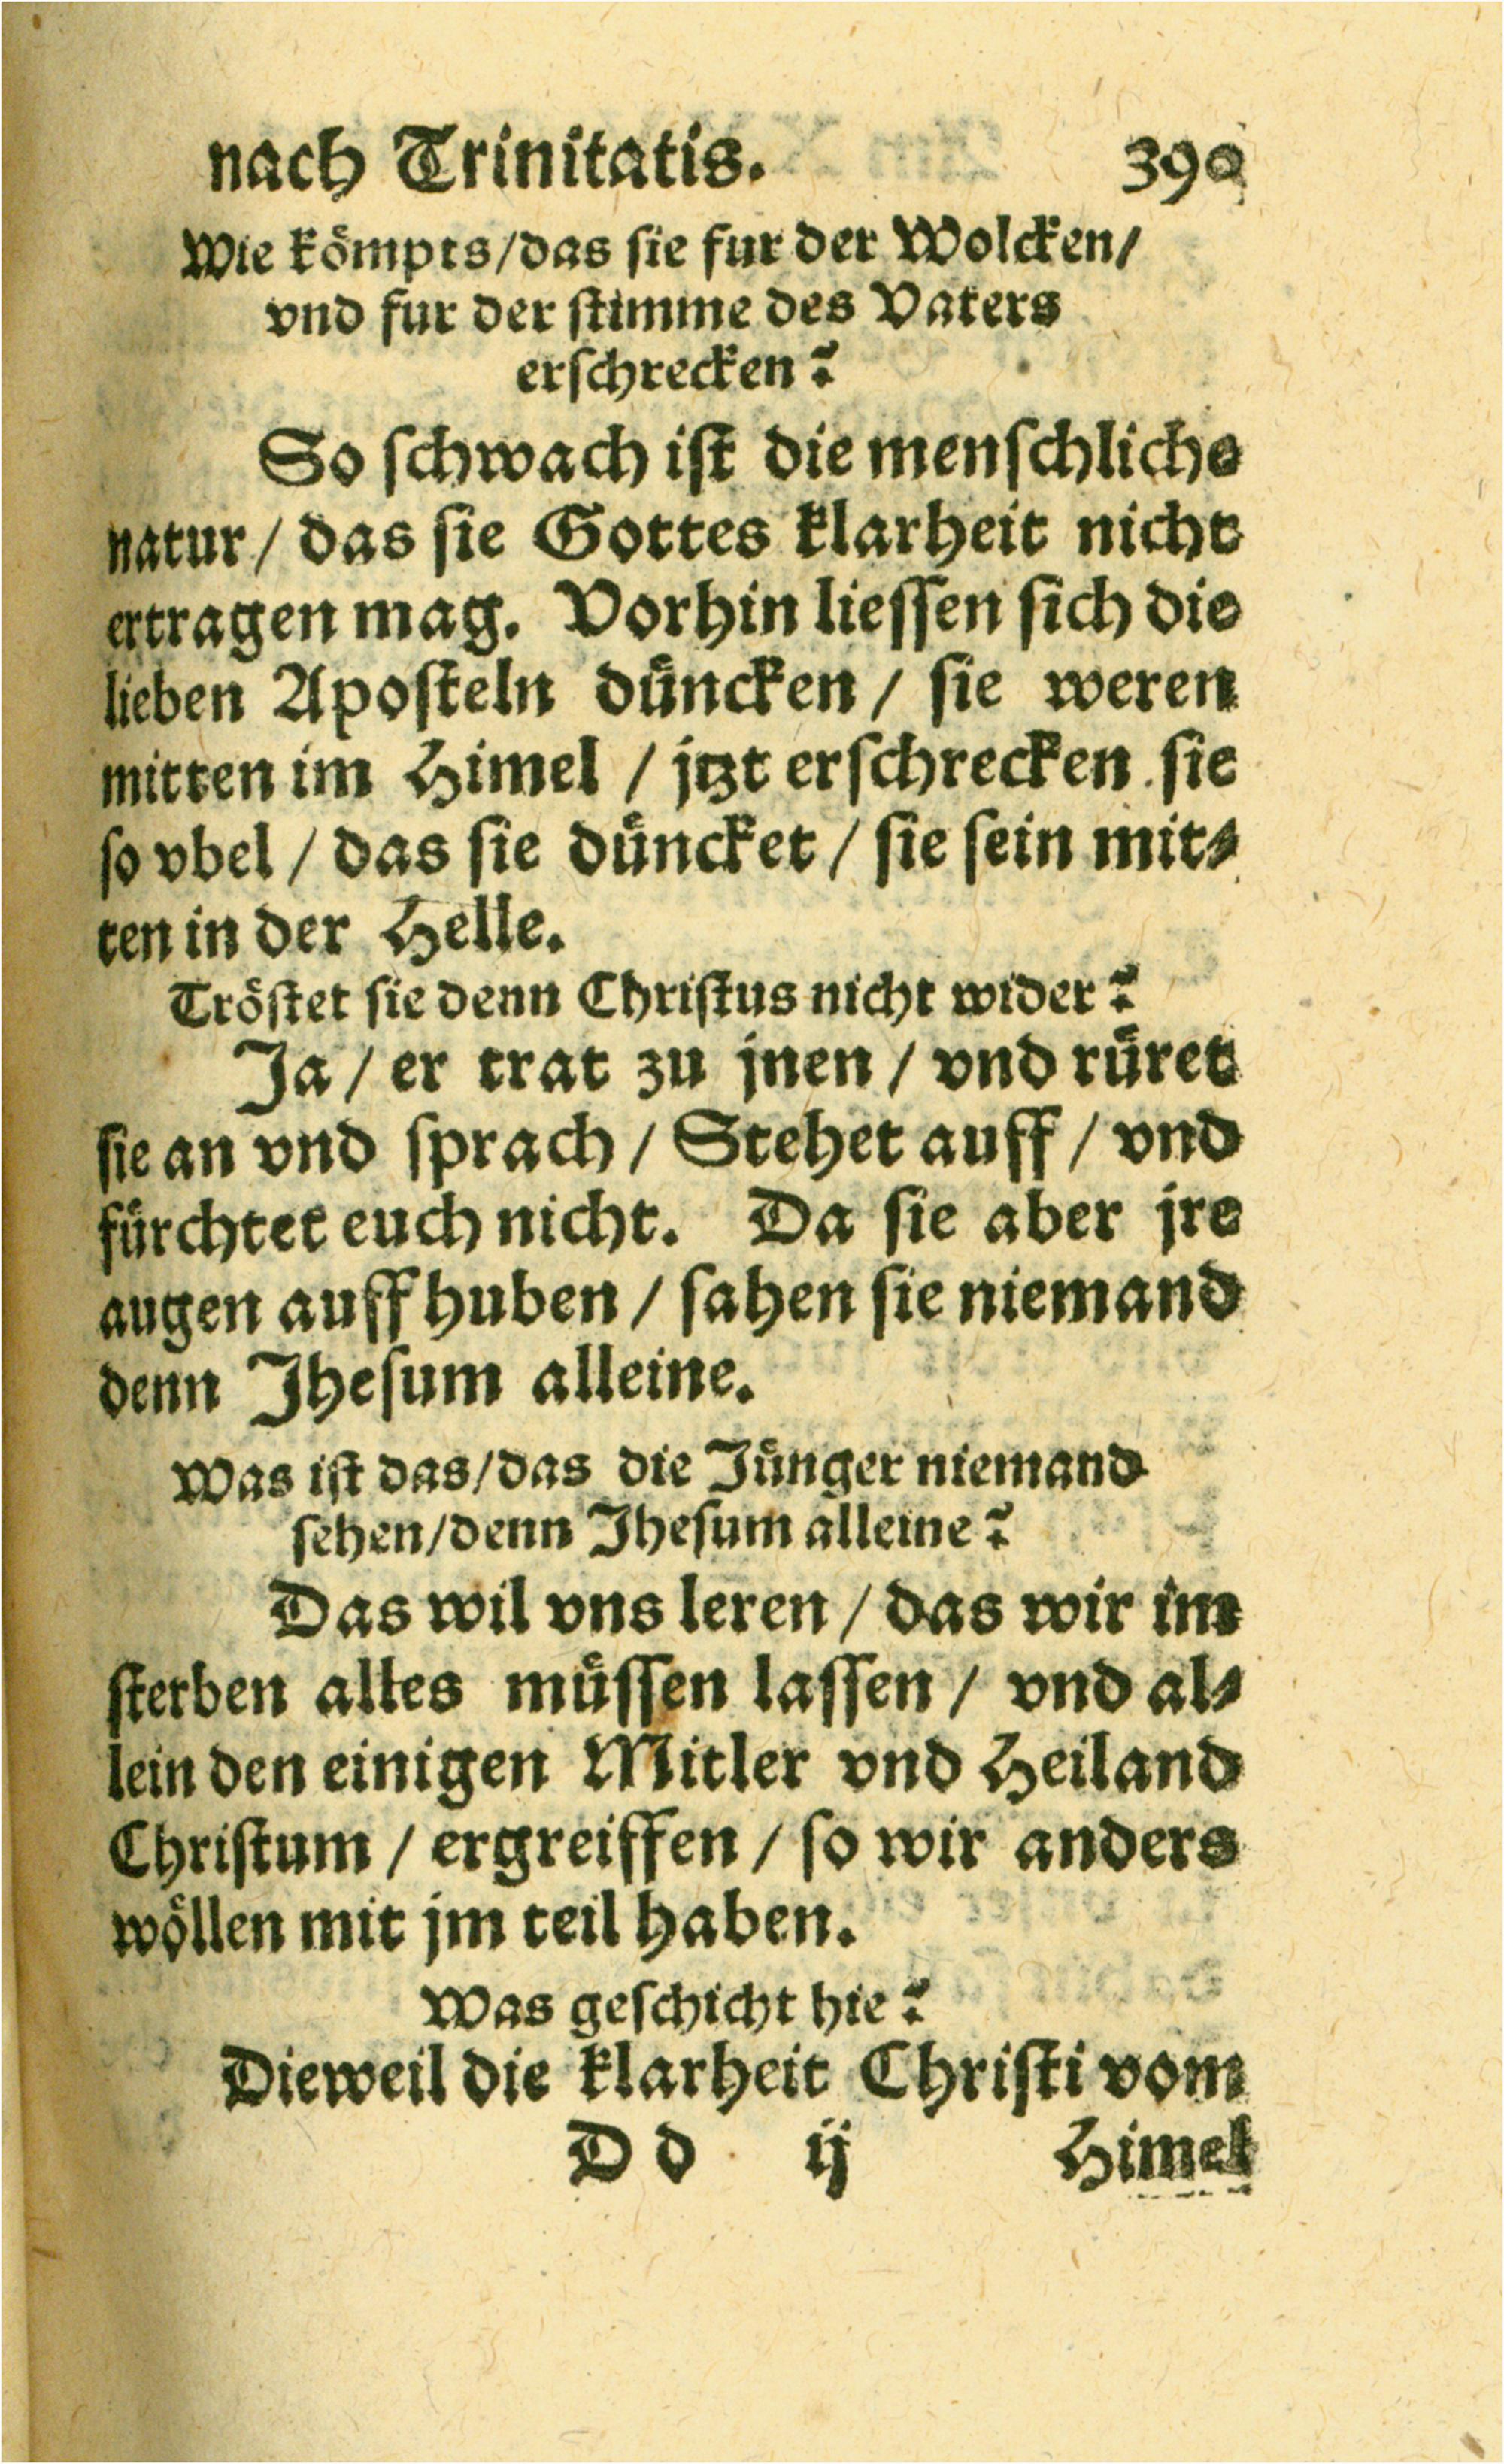 nach Trinitatis. 390
Wie kömpts/das sie fur der Wolcken/
vnd fur der stimme des Vaters
erschrecken?
So schwach ist die menschliche
natur / das sie Gottes klarheit nicht
ertragen mag. Vorhin liessen sich die
lieben Aposteln düncken / sie weren
mitten im Himel / jtzt erschrecken sie
so vbel / das sie düncket / sie sein mit⸗
ten in der Helle.
Tröstet sie denn Christus nicht wider?
Ja / er trat zu jnen / vnd rüret
sie an vnd sprach / Stehet auff / vnd
fürchtet euch nicht. Da sie aber jre
augen auff huben / sahen sie niemand
denn Jhesum alleine.
Was ist das/das die Jünger niemand
sehen/denn Jhesum alleine?
Das wil vns leren / das wir im
sterben alles müssen lassen / vnd al⸗
lein den einigen Mitler vnd Heiland
Christum / ergreiffen / so wir anders
wöllen mit jm teil haben.
Was geschicht hie?
Dieweil die klarheit Christi vom
D d ij Himel